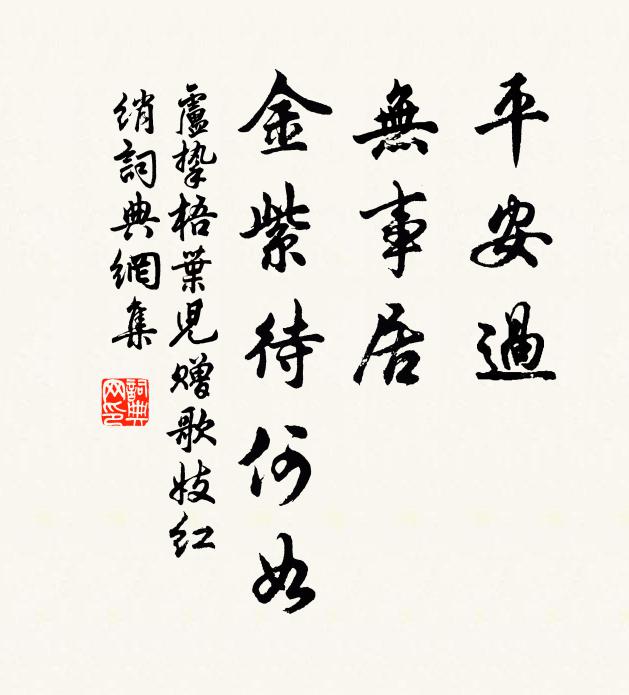 平安過
無事居
金紫待何如
盧摯梧葉兒赠歌妓紅
绡詞典網集
詞典
网印